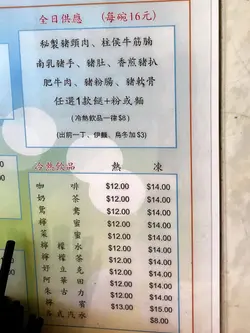 全日供應 (每碗16元)
秘製豬頸肉、柱侯牛筋腩
南乳豬手、豬肚、香煎豬扒
肥牛肉、豬粉腸、豬軟骨
任選1款餸+粉或麵
(冷熱飲品一律$8)
(出前一丁、伊麵、烏冬加$3)
冷熱飲品 熱 凍
咖啡 $12.00 $14.00
奶茶 $12.00 $14.00
鴛鴦 $12.00 $14.00
檸蜜 $12.00 $14.00
菜蜜 $12.00 $14.00
檸檬茶 $12.00 $14.00
檸檬水 $12.00 $14.00
好立克 $12.00 $14.00
阿華田 $12.00 $14.00
朱古力 $13.00 $15.00
$8.00